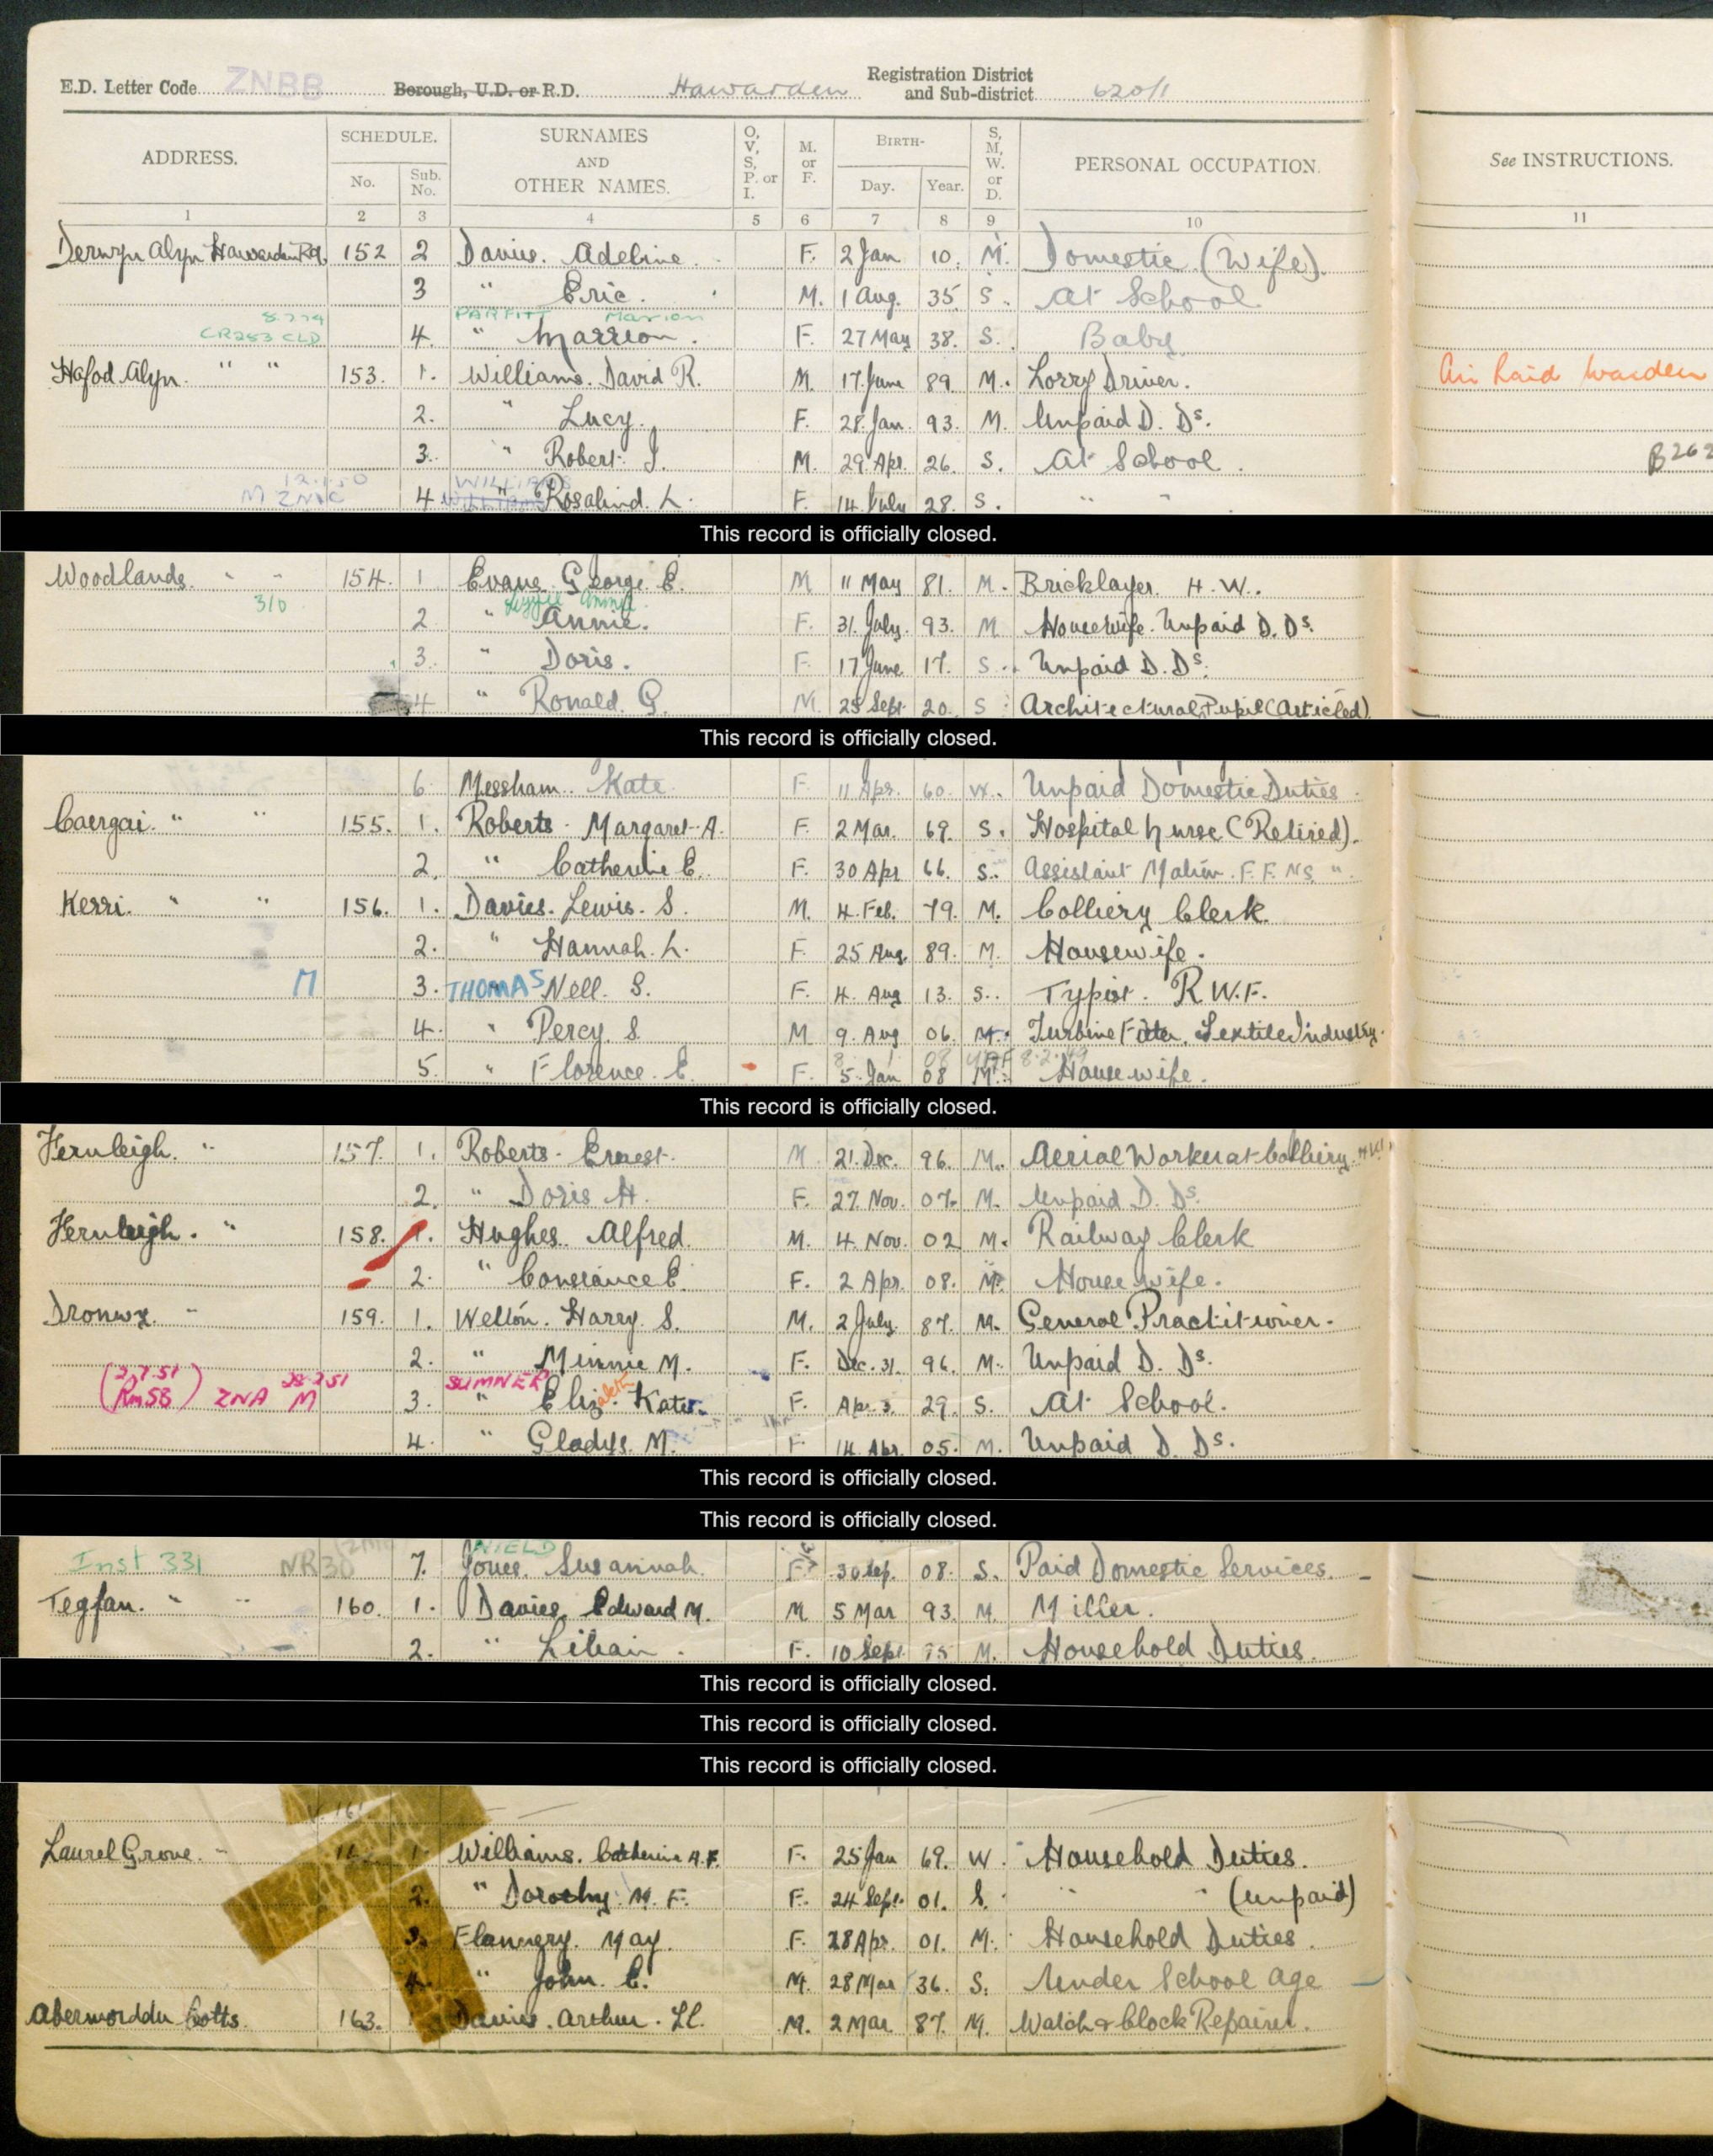 E.D. Letter Code ZNBB Borough, U.D. or R.D. Hawarden Registration District and Sub-district 620/1
ADDRESS. SCHEDULE. No. Sub. No. SURNAMES AND OTHER NAMES. O, V, S, P. or I. M. or F. BIRTH- Day. Year. S, M, W. or D. PERSONAL OCCUPATION. See INSTRUCTIONS.
1 2 3 4 5 6 7 8 9 10 11
Derwyn Alyn Hawarden Rd. 152 2 Davies. Adeline. F. 2 Jan 10. M. Domestic (Wife).
3 " Eric. M. 1 Aug. 35 S. At School
PARFITT Marion
CR283 CLD 4. " Marrion. F. 27 May 38. S. Baby
Hafod Alyn. " " 153. 1. Williams. David R. M. 17 June 89 M. Lorry Driver. Air Raid Warden
2. " Lucy. F. 28 Jan. 93. M. Unpaid D. Ds.
3. " Robert J. M. 29 Apr. 26. S. At School. B262
12.1.50 WILLIAMS
M ZNIC 4 " Rosalind. L. F. 14 July 28. S. " "
This record is officially closed.
Woodlands. " " 154. 1 Evans George E. M 11 May 81. M. Bricklayer. H.W.
310 Lizzie Annie.
2 " Annie. F. 31 July. 93. M Housewife. Unpaid D. Ds.
3. " Doris. F. 17 June 17. S. Unpaid D. Ds.
4 " Ronald. G. M. 25 Sept 20. S Architectural Pupil (Articled)
This record is officially closed.
6 Messham. Kate F. 11 Apr. 60. W. Unpaid Domestic Duties.
Caergai. " " 155. 1. Roberts. Margaret A. F. 2 Mar. 69. S. Hospital Nurse (Retired).
2. " Catherine E. F. 30 Apr 66. S. Assistant Matron. F.F. NS "
Kerri. " " 156. 1. Davies. Lewis. S. M. 4. Feb. 79. M. Colliery Clerk.
2. " Hannah. L. F. 25 Aug. 89. M. Housewife.
M 3. THOMAS Nell. S. F. 4. Aug 13. S. Typist. R.W.F.
4. " Percy. S. M 9. Aug 06. M. Turbine Fitter. Textile Industry.
8 1 08 8.2.49
5. " Florence. E. F. 5. Jan 08 M. Housewife.
This record is officially closed.
Fernleigh. " 157. 1. Roberts. Ernest. M 21. Dec. 96. M. Aerial Worker at Colliery. HW
2. " Doris H. F. 27. Nov. 07. M. Unpaid D. Ds.
Fernleigh. " 158. 1. Hughes. Alfred. M. 4. Nov. 02 M. Railway Clerk
2. " Constance E. F. 2 Apr. 08. M. Housewife.
Bronwy. " 159. 1. Wellón. Harry. S. M. 2 July. 87. M. General Practitioner.
2. " Minnie M. F. Dec. 31. 96. M. Unpaid D. Ds.
(2.7.51 RmSB) ZNA M 28.2.51 SUMNER
3. " Elizabeth Kate. F. Apr. 3. 29. S. At School.
4. " Gladys. M. F. 14. Apr. 05. M. Unpaid D. Ds.
This record is officially closed.
This record is officially closed.
NIELD
Inst 331 NR 30 7. Jones. Susannah. F. 30 Sep. 08. S. Paid Domestic Services.
Tegfan. " " 160. 1. Davies. Edward M. M. 5 Mar 93. M. Miller.
2. " Lilian. F. 10 Sept. 95 M. Household Duties.
This record is officially closed.
This record is officially closed.
This record is officially closed.
V. 161
Laurel Grove. " 1. Williams. Catherine A.F. F. 25 Jan 69. W. Household Duties.
2. " Dorothy. M. F. F. 24 Sept. 01. S. " " (unpaid)
3. Flannery. May. F. 28 Apr. 01. M. Household Duties.
4. " John. C. M. 28 Mar 36. S. Under School Age
Abermorddu Cotts. 163. 1 Davies. Arthur. Ll. M. 2 Mar 87. M. Watch & Clock Repairer.